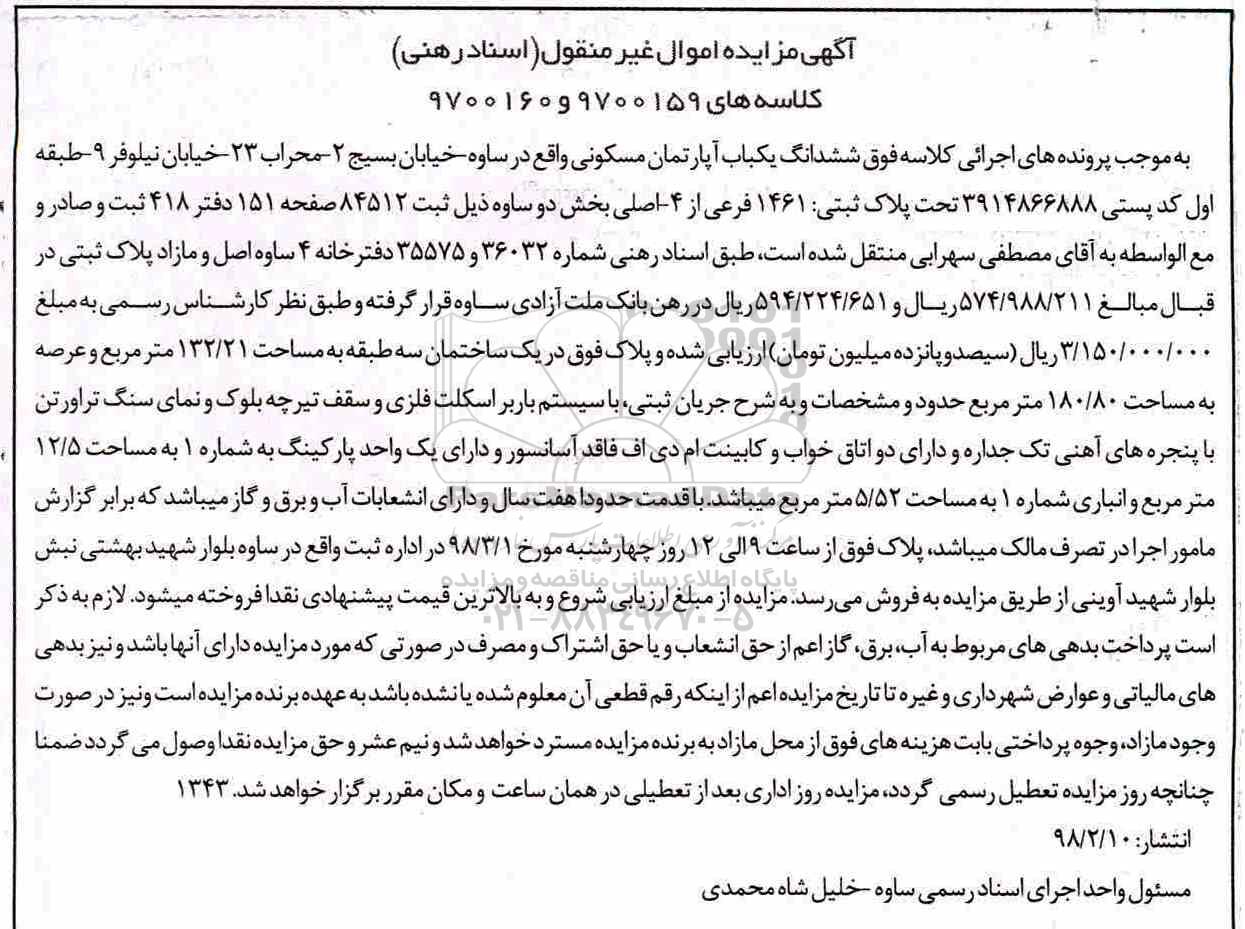 آگهی مزایده اموال غیر منقول(اسناد رهنی)
کلاسه های ۹۷۰۰۱۵۹ و ۹۷۰۰۱۶۰
به موجب پرونده های اجرائی کلاسه فوق ششدانگ یکباب آپارتمان مسکونی واقع در ساوه-خیابان بسیج ۲-محراب ۲۳-خیابان نیلوفر ۹-طبقه
اول کد پستی ۳۹۱۴۸۶۶۸۸۸ تحت پلاک ثبتی: ۱۴۶۱ فرعی از ۴-اصلی بخش دو ساوه ذیل ثبت ۸۴۵۱۲ صفحه ۱۵۱ دفتر ۴۱۸ ثبت و صادر و
مع الواسطه به آقای مصطفی سهرابی منتقل شده است، طبق اسناد رهنی شماره ۳۶۰۳۲ و ۳۵۵۷۵ دفترخانه ۴ ساوه اصل و مازاد پلاک ثبتی در
قبال مبالغ ۵۷۴/۹۸۸/۲۱۱ ریال و ۵۹۴/۲۲۴/۶۵۱ ریال در رهن بانک ملت آزادی ساوه قرار گرفته و طبق نظر کارشناس رسمی به مبلغ
۳/۱۵۰/۰۰۰/۰۰۰ ریال (سیصدو پانزده میلیون تومان) ارزیابی شده و پلاک فوق در یک ساختمان سه طبقه به مساحت ۱۳۲/۲۱ متر مربع و عرصه
به مساحت ۱۸۰/۸۰ متر مربع حدود و مشخصات و به شرح جریان ثبتی، با سیستم باربر اسکلت فلزی و سقف تیرچه بلوک و نمای سنگ تراورتن
با پنجره های آهنی تک جداره و دارای دو اتاق خواب و کابینت ام دی اف فاقد آسانسور و دارای یک واحد پارکینگ به شماره ۱ به مساحت ۱۲/۵
متر مربع و انباری شماره ۱ به مساحت ۵/۵۲ متر مربع میباشد. با قدمت حدودا هفت سال و دارای انشعابات آب و برق و گاز میباشد که برابر گزارش
مامور اجرا در تصرف مالک میباشد، پلاک فوق از ساعت ۹ الی ۱۲ روز چهارشنبه مورخ ۹۸/۳/۱ در اداره ثبت واقع در ساوه بلوار شهید بهشتی نبش
بلوار شهید آوینی از طریق مزایده به فروش می‌رسد. مزایده از مبلغ ارزیابی شروع و به بالاترین قیمت پیشنهادی نقدا فروخته میشود. لازم به ذکر
است پرداخت بدهی های مربوط به آب، برق، گاز اعم از حق انشعاب و یا حق اشتراک و مصرف در صورتی که مورد مزایده دارای آنها باشد و نیز بدهی
های مالیاتی و عوارض شهرداری و غیره تا تاریخ مزایده اعم از اینکه رقم قطعی آن معلوم شده یا نشده باشد به عهده برنده مزایده است ونیز در صورت
وجود مازاد، وجوه پرداختی بابت هزینه های فوق از محل مازاد به برنده مزایده مسترد خواهد شد و نیم عشر و حق مزایده نقدا وصول می گردد ضمنا
چنانچه روز مزایده تعطیل رسمی گردد، مزایده روز اداری بعد از تعطیلی در همان ساعت و مکان مقرر برگزار خواهد شد. ۱۳۴۳
انتشار: ۹۸/۲/۱۰
مسئول واحد اجرای اسناد رسمی ساوه -خلیل شاه محمدی
پایگاه اطلاع رسانی مناقصه و مزایده
۰۲۱-۸۸۳۴۹۶۷۰-۵